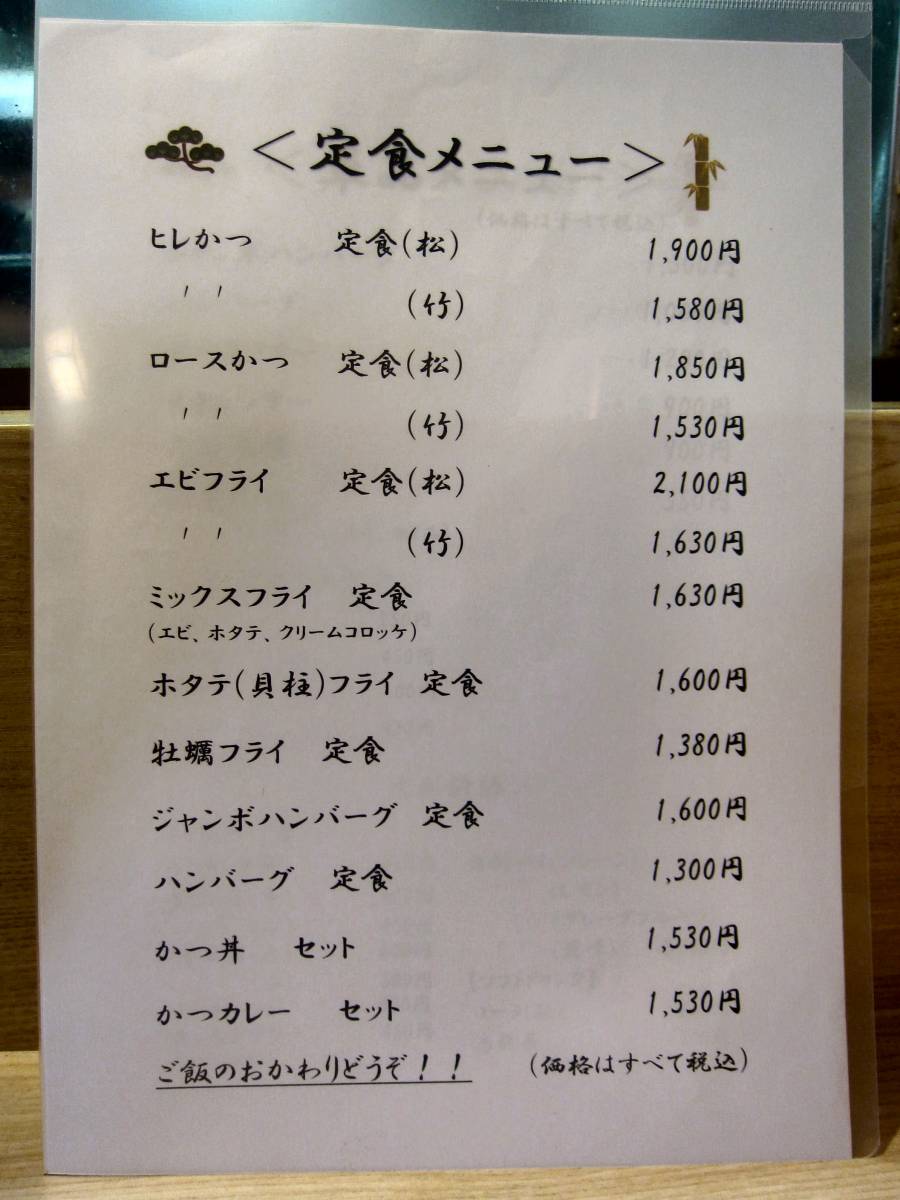 ＜定食メニュー＞
ヒレかつ 定食(松) 1,900円
〃 (竹) 1,580円
ロースかつ 定食(松) 1,850円
〃 (竹) 1,530円
エビフライ 定食(松) 2,100円
〃 (竹) 1,630円
ミックスフライ 定食 1,630円
(エビ、ホタテ、クリームコロッケ)
ホタテ(貝柱)フライ 定食 1,600円
牡蠣フライ 定食 1,380円
ジャンボハンバーグ 定食 1,600円
ハンバーグ 定食 1,300円
かつ丼 セット 1,530円
かつカレー セット 1,530円
ご飯のおかわりどうぞ！！ (価格はすべて税込)